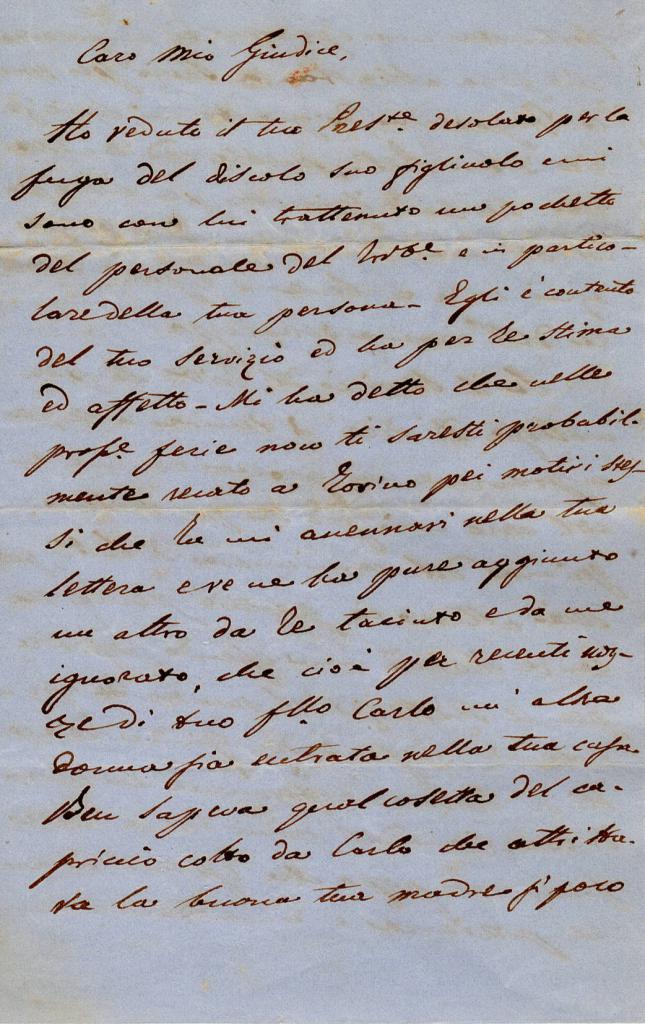 Caro mio Giudice,
Ho veduto il tuo Pres.te desolato per la
fuga del discolo suo figliuolo e mi
sono con lui trattenuto un pochetto
del personale del Trib.e e in partico-
lare della tua persona - Egli è contento
del tuo servizio ed ha per te stima
ed affetto - Mi ha detto che nelle
pross.e ferie non ti saresti probabil-
mente recato a Torino pei motivi stes-
si che tu mi accennavi nella tua
lettera e ve ne ha pure aggiunto
un altro da te taciuto e da me
ignorato, che cioè per recenti noz-
ze di tuo f.llo Carlo un'altra
donna sia entrata nella tua casa
Ben sapeva qualcosetta del ca-
priccio cotto da Carlo che attrista-
va la buona tua madre sì poco